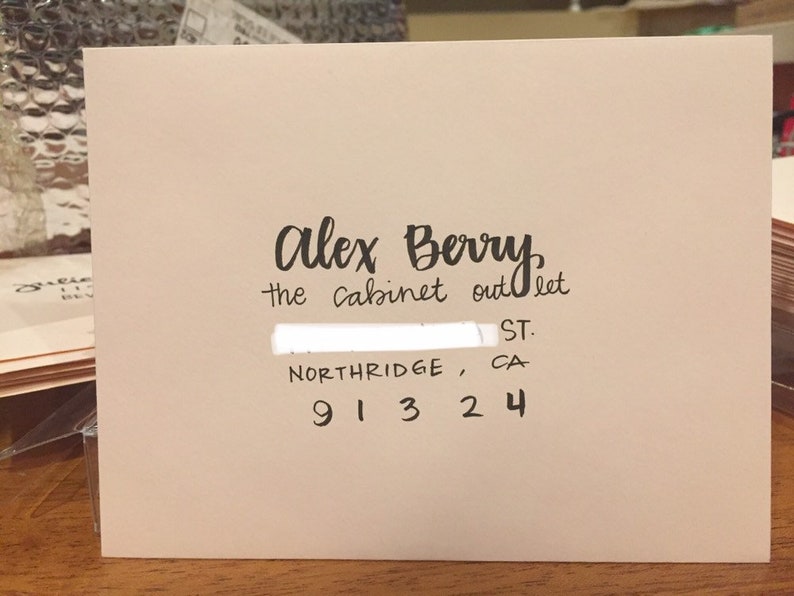 Alex Berry
the cabinet outlet
ST.
NORTHRIDGE, CA
91324